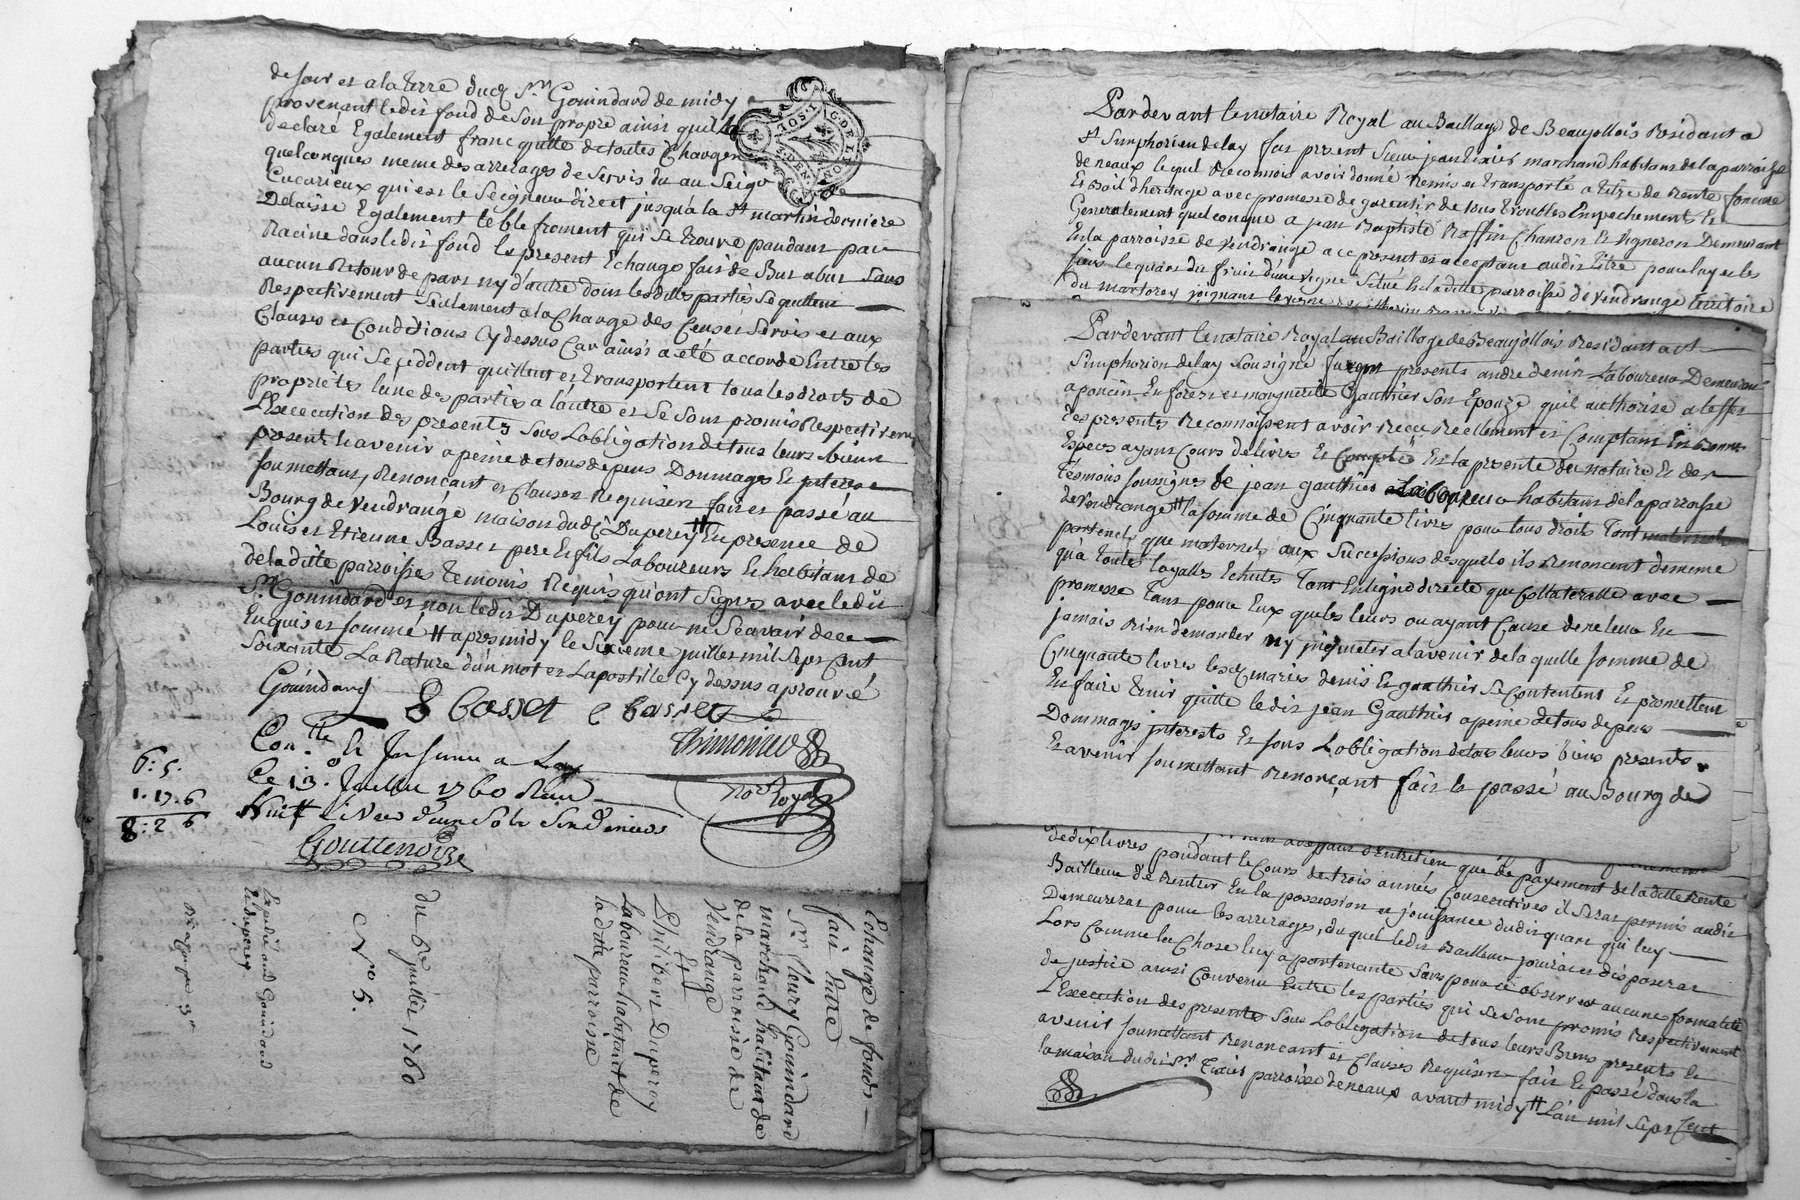 de soir et a la terre dud Sr. Gouindard de midy
provenant ledit fond de Son propre ainsi quil
declaré Egalement franc quitte de toutes Charges
quelconques meme des arrerages de Servis du au Seigr
Cucurieux qui est le Seigneur direct jusqu'a la St martin derniere
Delaisse Egalement le blé froment qui se trouve pandant par
Racine dans ledit fond le present Echange fait de But a but Sans
aucun Retour de part ny d'autre dont lesdittes parties Se quittent
Respectivement Seulement a la Charge des Cens et Servis et aux
Clauses et Conditions Cy dessus Car ainsi a eté accordé Entre les
parties qui Se Ceddent quittent et transportent tous les droits de
proprietés lune des parties a l'autre et Se Sont promis Respectivemt
L'Excecution des presentes Sous Lobligation de tous leurs biens
present et avenir a peine de tous depens Dommages et interest
Soumettant, Renoncant et Clauses Requises fait et passé au
Bourg de Vendrange maison dud Duperey # En presence de
Louis et Etienne Basset pere et fils Laboureurs Et habitans de
de laditte parroisse temoins Requis qu'ont Signes avec ledit
Sr. Gouindard et non ledit Duperey pour ne Scavoir de ce
Enquis et sommé # apres midy le Sixieme juillet mil Sept Cent
Soixante La Rature d'un mot et Lapostille Cy dessus aprouvé
Gouindard
L Basset e basset
Con.lle Et Insinué a Lay
Thimonier
6 : 5 .
Le 13. Juillet 1760 Reçu
Not. Royal
1 . 17 . 6
huit Livres deux Sols Six Deniers
8 : 2 6
Gouttenoire
Echange de fonds
fait Entre
Sr. fleury Gouindard
marchand habitant de
de la parroisse de
Vendrange
Et
Philibert Duperey
Laboureur habitant de
laditte parroisse
du 6e juillet 1760
No 5.
Expedié aud Gouindard
Et duperey
Pardevant le notaire Royal au Baillage de Beaujollois Residant a
St Simphorien de lay fut present Sieur jean tixier marchand habitant de la parroisse
de neaux lequel Reconnois avoir donné Remis et transporté a titre de Rente fonciere
Et Bail d'heritage avec promesse de garentir de tous troubles Empechements Et
Generalement quelconque a jean Baptiste Raffin Charron Et Vigneron Demeurant
En la parroisse de Vendrange a ce present et acceptant audit titre pour luy et les
siens le quart du fruit d'une vigne Scitué En laditte parroisse de Vendrange territoire
du martorey joignant la vigne
Pardevant le notaire Royal au Baillage de Beaujollois Residant a St
Simphorien de lay Sousigné furent presents andré denis Laboureur Demeurant
a poncin En forest et marguerite Gauthier Son Epouze quil authorise a leffet
des presentes Reconnoissent avoir Recu Reellement et Comptant En Bonnes
Espèces ayant Cours de livres Et Compté En la presente du notaire Et des
Temoins sousignes de jean gauthier Laboureur habitant de la parroisse
de Vendrange # la somme de Cinquante livres pour tous droits tant
paternels que maternels aux Successions desquels ils Renoncent De meme
qu'a toutes loyalles Echutes Tant En ligne directe que Collateralle avec
promesse Tant pour Eux que les leurs ou ayant Cause de ne leur En
jamais Rien demander ny inquieter a lavenir de laquelle somme de
Cinquante livres lesd mariés denis Et gauthier Se Contentent Et promettent
En faire Tenir quitte ledit jean Gauthier a peine de tous depens
Dommages interests Et sous Lobligation de tous leurs Biens presents
Et avenir soumettant Renonçant fait Et passé au Bourg de
de dix livres pandant le Cours de trois années Consecutives il Seras permis audit
Bailleur de Rentrer En la possession et jouissance dudit quart qui luy
Demeureras pour les arrerages, du quel ledit Bailleur jouiras et disposeras
Lors Comme la Chose luy apartenante Sans pour ce observer aucune formalité
de justice ainsi Convenu Entre les parties qui Se Sont promis Respectivement
L'Execcution des presentes Sous Lobligation de tous leurs Biens presents Et
avenir soumettant Renoncant et Clauses Requises fait Et passé dans la
la maison dudit Sr. Tixier parroisse de neaux avant midy # L'an mil Sept Cent